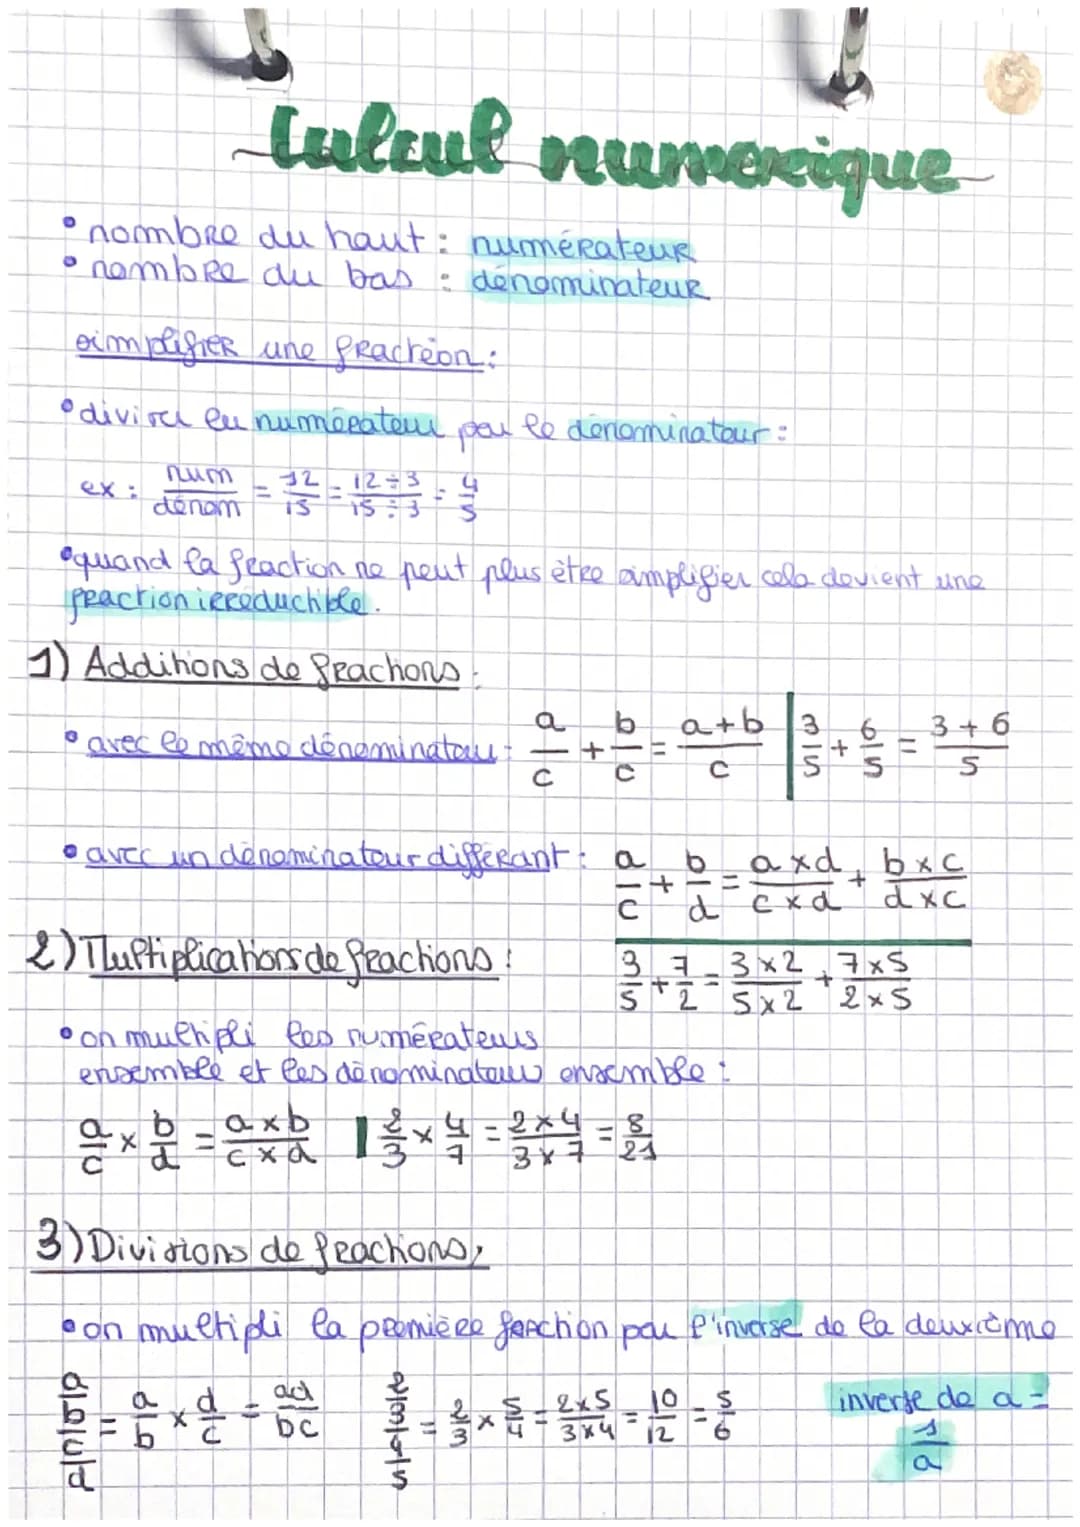 Calcul numerique
• nombre du haut : numérateur
• nombre du bas : dénominateur
simplifier une fraction :
• diviser le numérateur par le dénominateur :
ex : num/dénom = 12/15 = 12÷3/15÷3 = 4/5
• quand la fraction ne peut plus être simplifier cela devient une
fraction irréductible.
1) Additions de fractions :
• avec le même dénominateur : a/c + b/c = a+b/c | 3/5 + 6/5 = 3+6/5
• avec un dénominateur différant : a/c + b/d = a×d/c×d + b×c/d×c
2) Multiplications de fractions :
3/5 + 7/2 = 3×2/5×2 + 7×5/2×5
• on multipli les numérateurs
ensemble et les dénominateurs ensemble :
a/c × b/d = a×b/c×d | 2/3 × 4/7 = 2×4/3×7 = 8/21
3) Divisions de fractions,
• on multipli la première fraction par l'inverse de la deuxième
a/b/c/d = a/b × d/c = ad/bc 2/3/4/5 = 2/3 × 5/4 = 2×5/3×4 = 10/12 = 5/6 inverse de a = 1/a